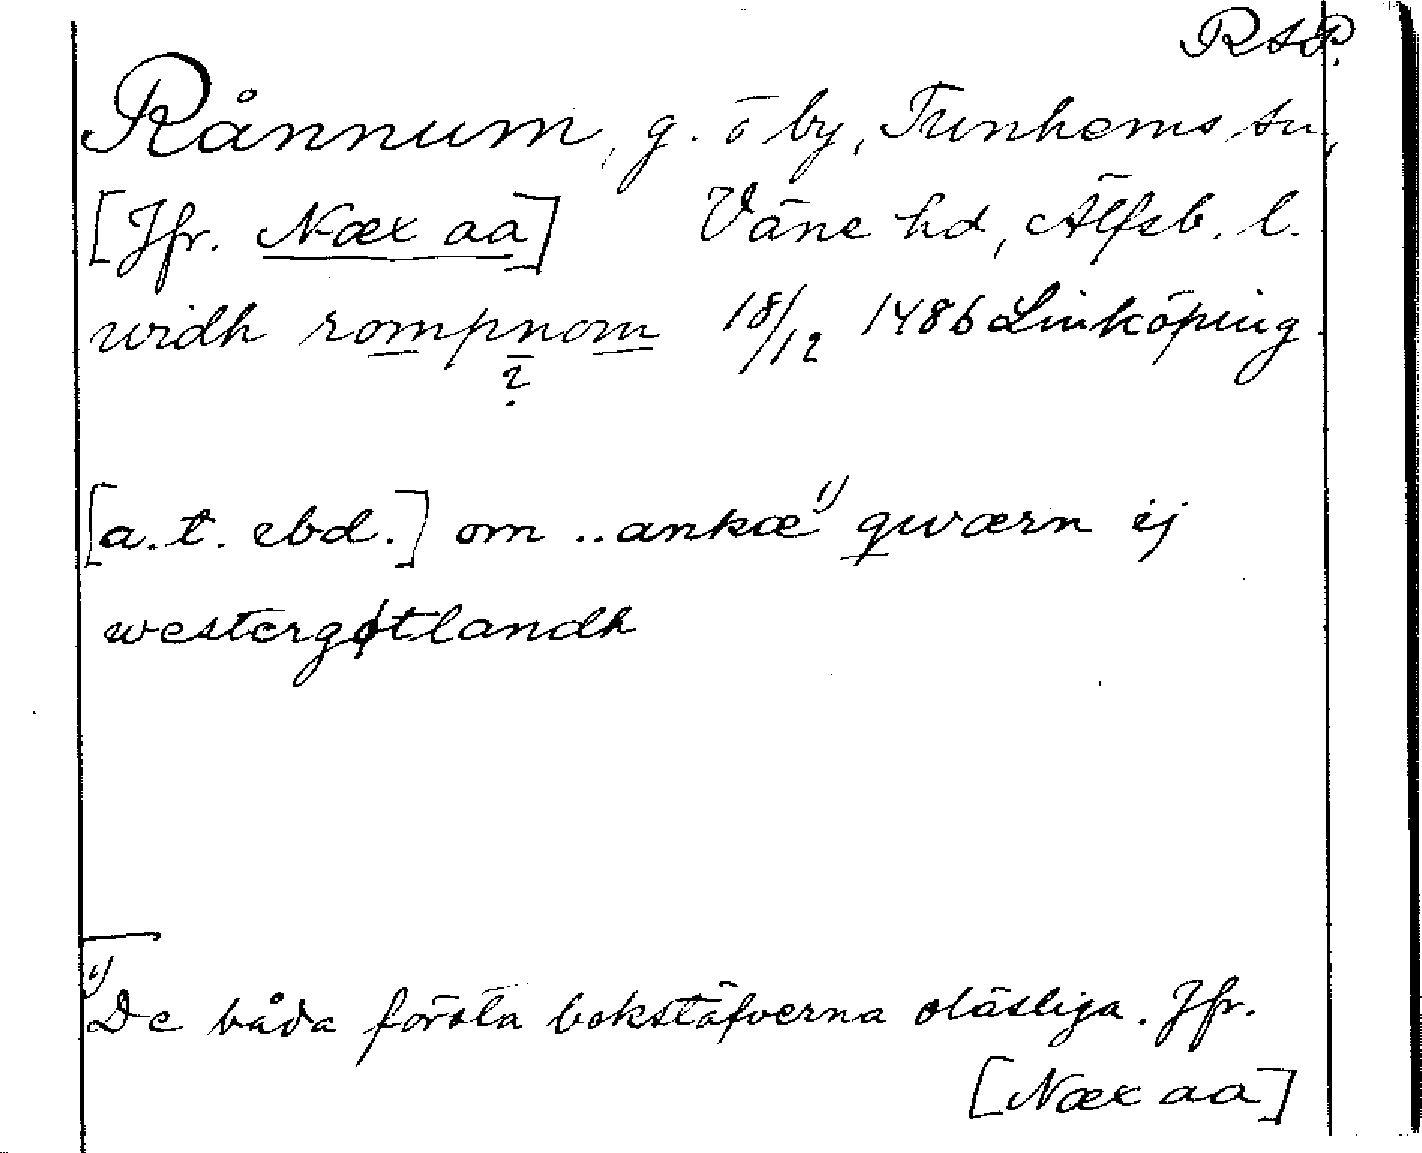 RAP.
Rånnum, g. o by, Tunhems sn,
[Jfr. Næx aa] Väne hd, Älfsb. l.
widh rompnom 18/12 1486 Linköping.
?
[a.t. ebd.] om ..ankæ 1) qwærn ij
westergøtlandh
1) De båda första bokstäfverna oläsliga. Jfr.
[Næx aa]